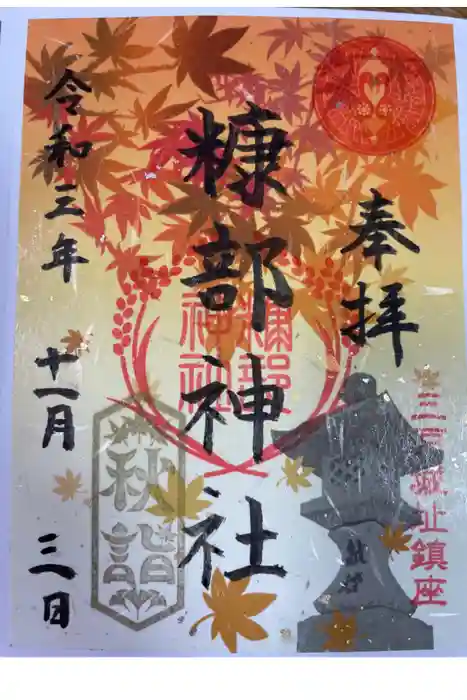 奉拝
三戸城址鎮座
糠部神社
糠部
神社
秋詣
令和三年
十一月
三日